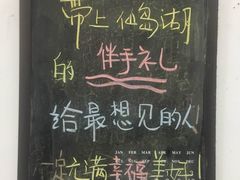 带上仙岛湖
的 伴手礼
给最想见的人!
JAN FEB MAR APR MAY JUN
一定充满幸福